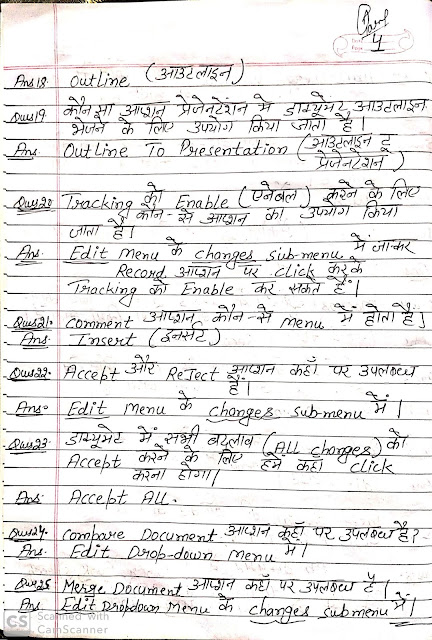 4
Ans18. Outline (आउटलाइन)
Ques19. कौन सा आप्शन प्रेजेन्टेशन में डाक्यूमेंट आउटलाइन
भेजने के लिए उपयोग किया जाता है।
Ans. Outline To Presentation (आउटलाइन टू
प्रेजेनटेशन)
Ques20. Tracking को Enable (ऐनेबल) करने के लिए
कौन-से आप्शन का उपयोग किया
जाता है।
Ans. Edit menu के changes sub-menu में जाकर
Record आप्शन पर click करके
Tracking को Enable कर सकते हैं।
Ques21. Comment आप्शन कौन-से menu में होता है।
Ans. Insert (इनसर्ट)
Ques22. Accept और Reject आप्शन कहाँ पर उपलब्ध
हैं।
Ans. Edit Menu के changes sub-menu में।
Ques23. डाक्यूमेंट में सभी बदलाव (All changes) को
Accept करने के लिए हमे कहाँ click
करना होगा।
Ans. Accept All.
Ques24. Compare Document आप्शन कहाँ पर उपलब्ध है?
Ans. Edit Drop-down menu में।
Ques25. Merge Document आप्शन कहाँ पर उपलब्ध है।
Ans. Edit Dropdown Menu के changes submenu में।
CS Scanned with
CamScanner